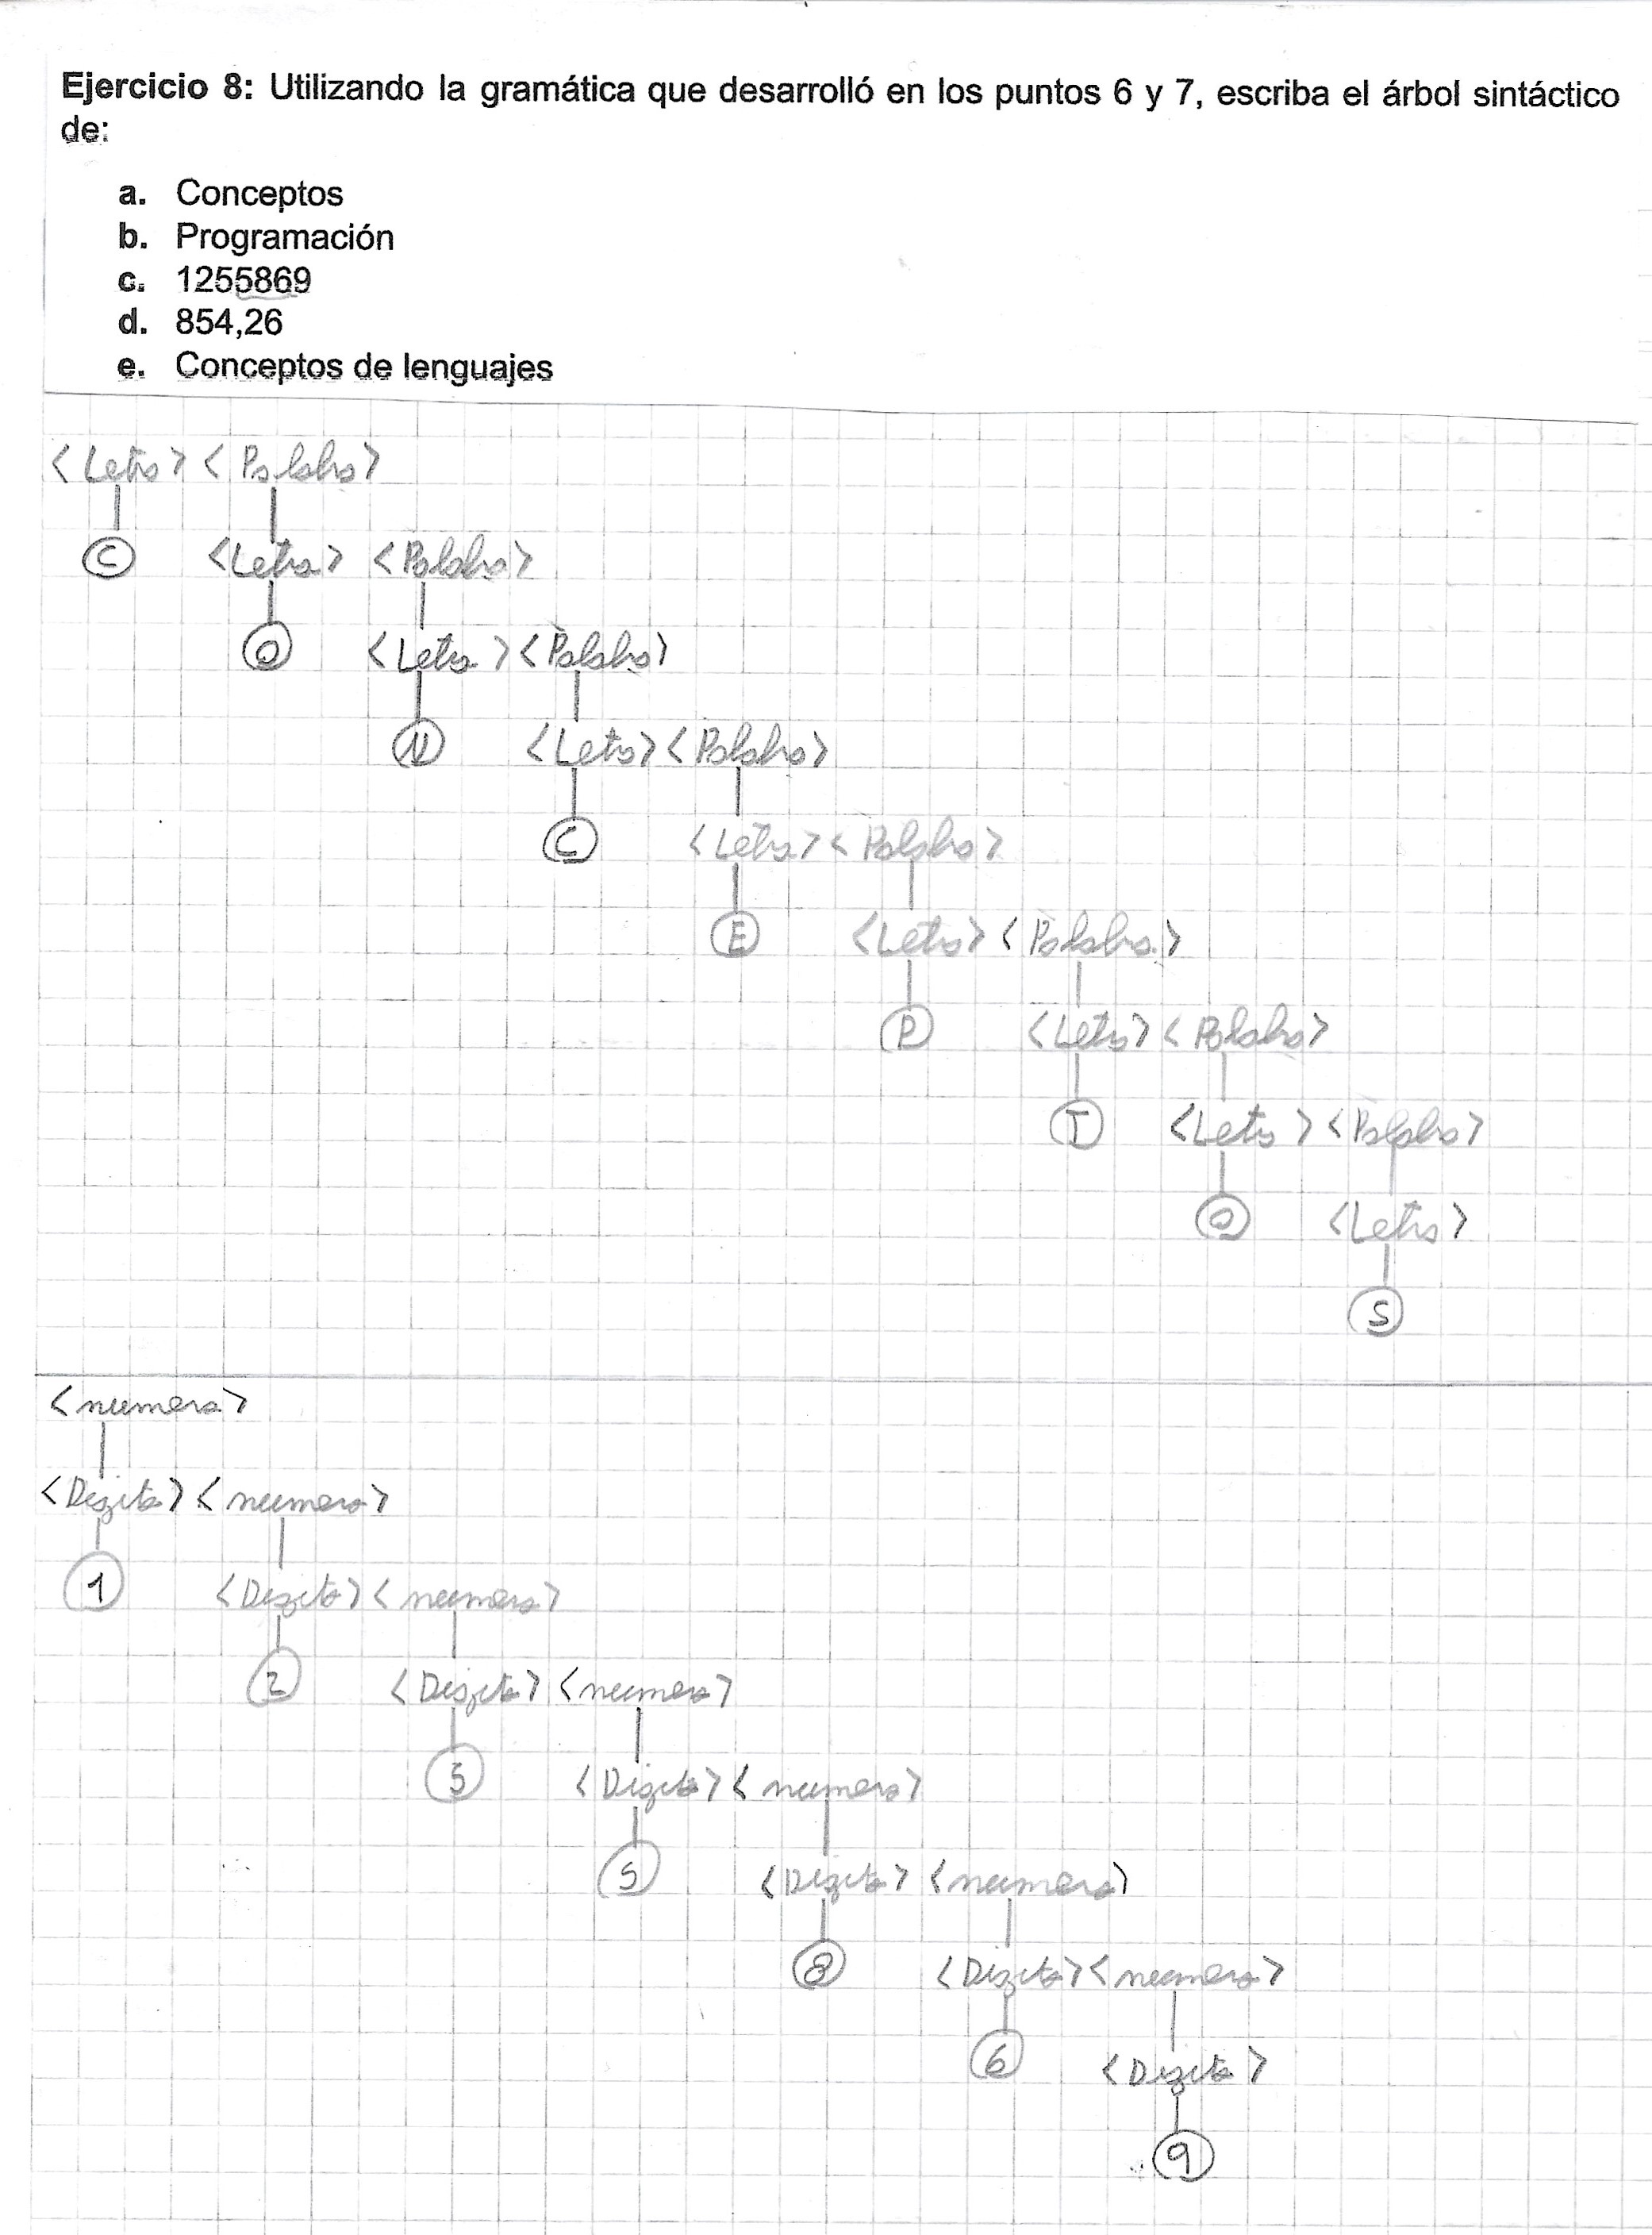 Ejercicio 8: Utilizando la gramática que desarrolló en los puntos 6 y 7, escriba el árbol sintáctico
de:
a. Conceptos
b. Programación
c. 1255869
d. 854,26
e. Conceptos de lenguajes
<Letra> <Palabra>
C <Letra> <Palabra>
O <Letra> <Palabra>
N <Letra> <Palabra>
C <Letra> <Palabra>
E <Letra> <Palabra>
P <Letra> <Palabra>
T <Letra> <Palabra>
O <Letra>
S
<numero>
<Digito> <numero>
1 <Digito> <numero>
2 <Digito> <numero>
5 <Digito> <numero>
5 <Digito> <numero>
8 <Digito> <numero>
6 <Digito>
9